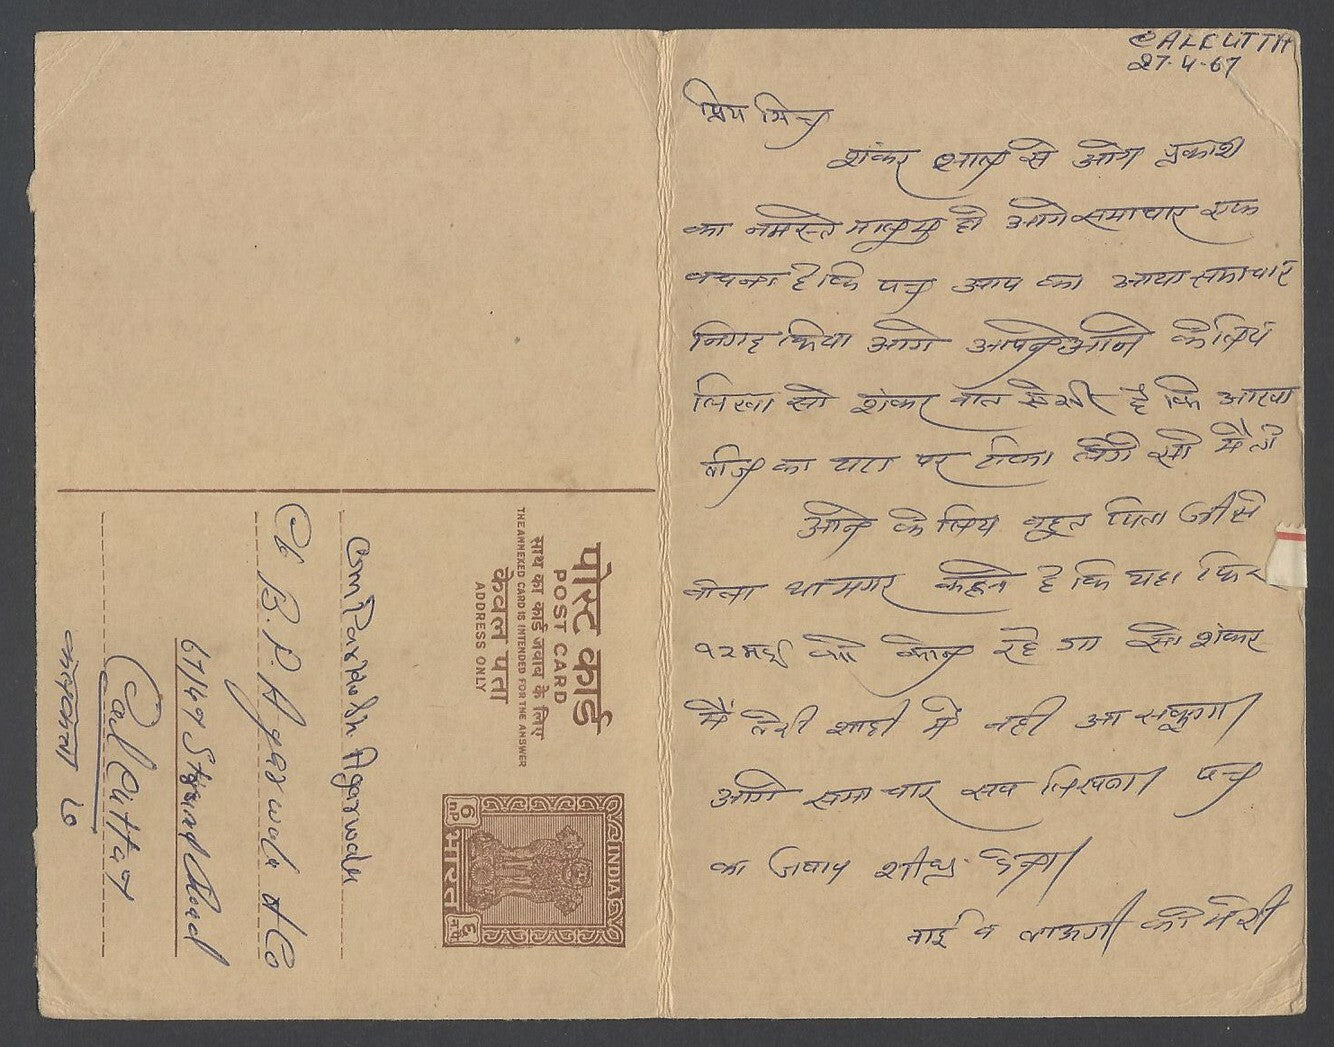 CALCUTTA
27-4-67
प्रिय मित्र
शंकर लाल से ओम प्रकाश
का नमस्ते मालुम हो आगे समाचार एक
है कि पत्र आप का आया समाचार
किया आगे आपने आने के लिये
लिखा सो शंकर बात है कि
का पर सो मै तो
आने के लिय बहुत पिता जी से
बोला था मगर कहते है कि यहा फिर
१२ मई को कोन रहे गा सो शंकर
मैं तेरी शादी में नही आ सकूगा।
आगे समाचार सब लिखना। पत्र
का जवाब शीघ्र देना।
भाई व को मेरी
पोस्ट कार्ड
POST CARD
साथ का कार्ड जवाब के लिए
THE ANNEXED CARD IS INTENDED FOR THE ANSWER
केवल पता
ADDRESS ONLY
INDIA
6 nP
भारत
६ न.पै.
Om Parkash Agarwala
C/o B. P. Agarwala & Co
67/47 Strand Road
Calcutta 7
कलकत्ता ७